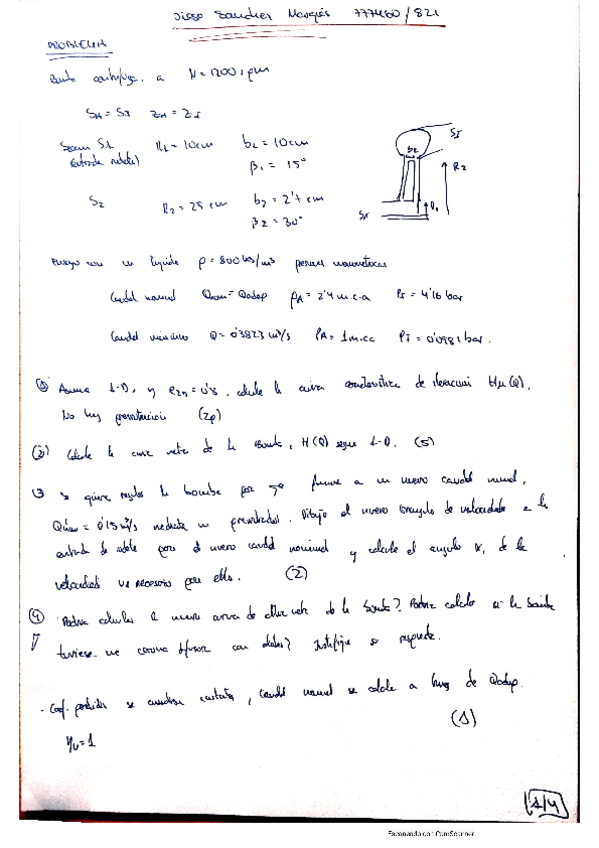 Diego Sanchez Marqués 777460/821
PROBLEMA
Bomba centrífuga a N=1200 rpm
S_A = S_I z_A = z_I
Sean S1 R1 = 10cm b2 = 10cm
(entrada rodete) β1 = 15°
S2 R2 = 25 cm b2 = 2'7 cm
β2 = 30°
S_I
b2
R2
R1
un líquido ρ = 800 kg/m³ presiones manométricas
Caudal nominal Qnom = Qadap PA = 2'4 m.c.a PI = 4'16 bar
Caudal máximo Q = 0'3823 m³/s PA = 1 m.c.a PI = 0'0981 bar.
① Asuma 1-D, y e2n = 0'8. calcule la curva característica de Hu(Q).
No hay prerrotación (2p)
② Calcule la curva neta de la bomba, H(Q) segun 1-D. (5)
③ Se quiere regular la bomba para que funcione a un nuevo caudal nominal,
Q = 0'15 m³/s mediante un prerrotador. Dibuje el nuevo triángulo de velocidades a la
entrada de rodete para el nuevo caudal nominal y calcule el angulo α1 de la
velocidad necesario para ello. (2)
④ Podria calcular la nueva curva de altura neta de la bomba? Podria calcular si la bomba
tuviese una corona difusora con alabes? Justifique su respuesta.
- Coef. perdidas se consideran constantes, Caudal nominal se calcula a traves de Qadap.
(1)
ηv = 1
1/4
Escaneado con CamScanner